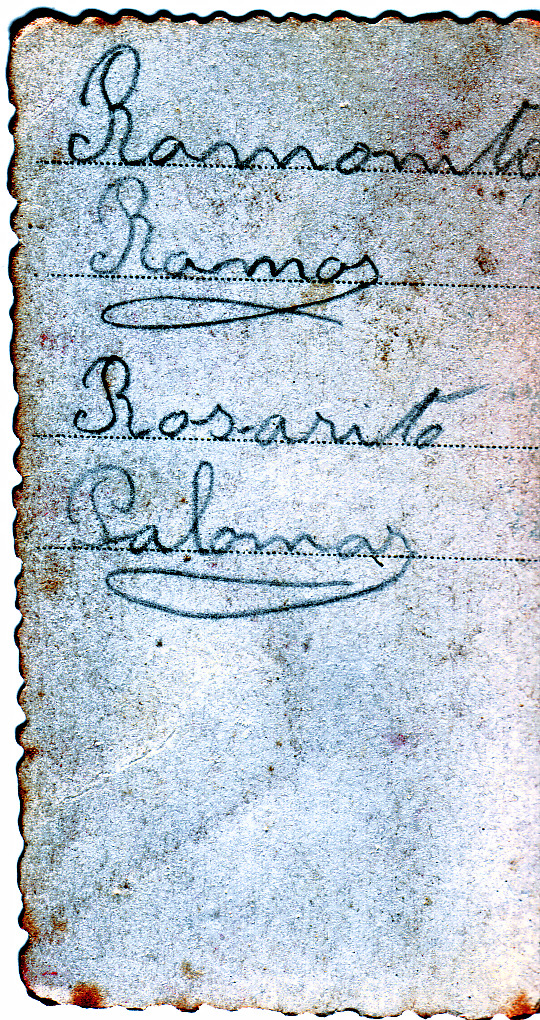 Ramonito
Ramos
Rosarito
Palomar